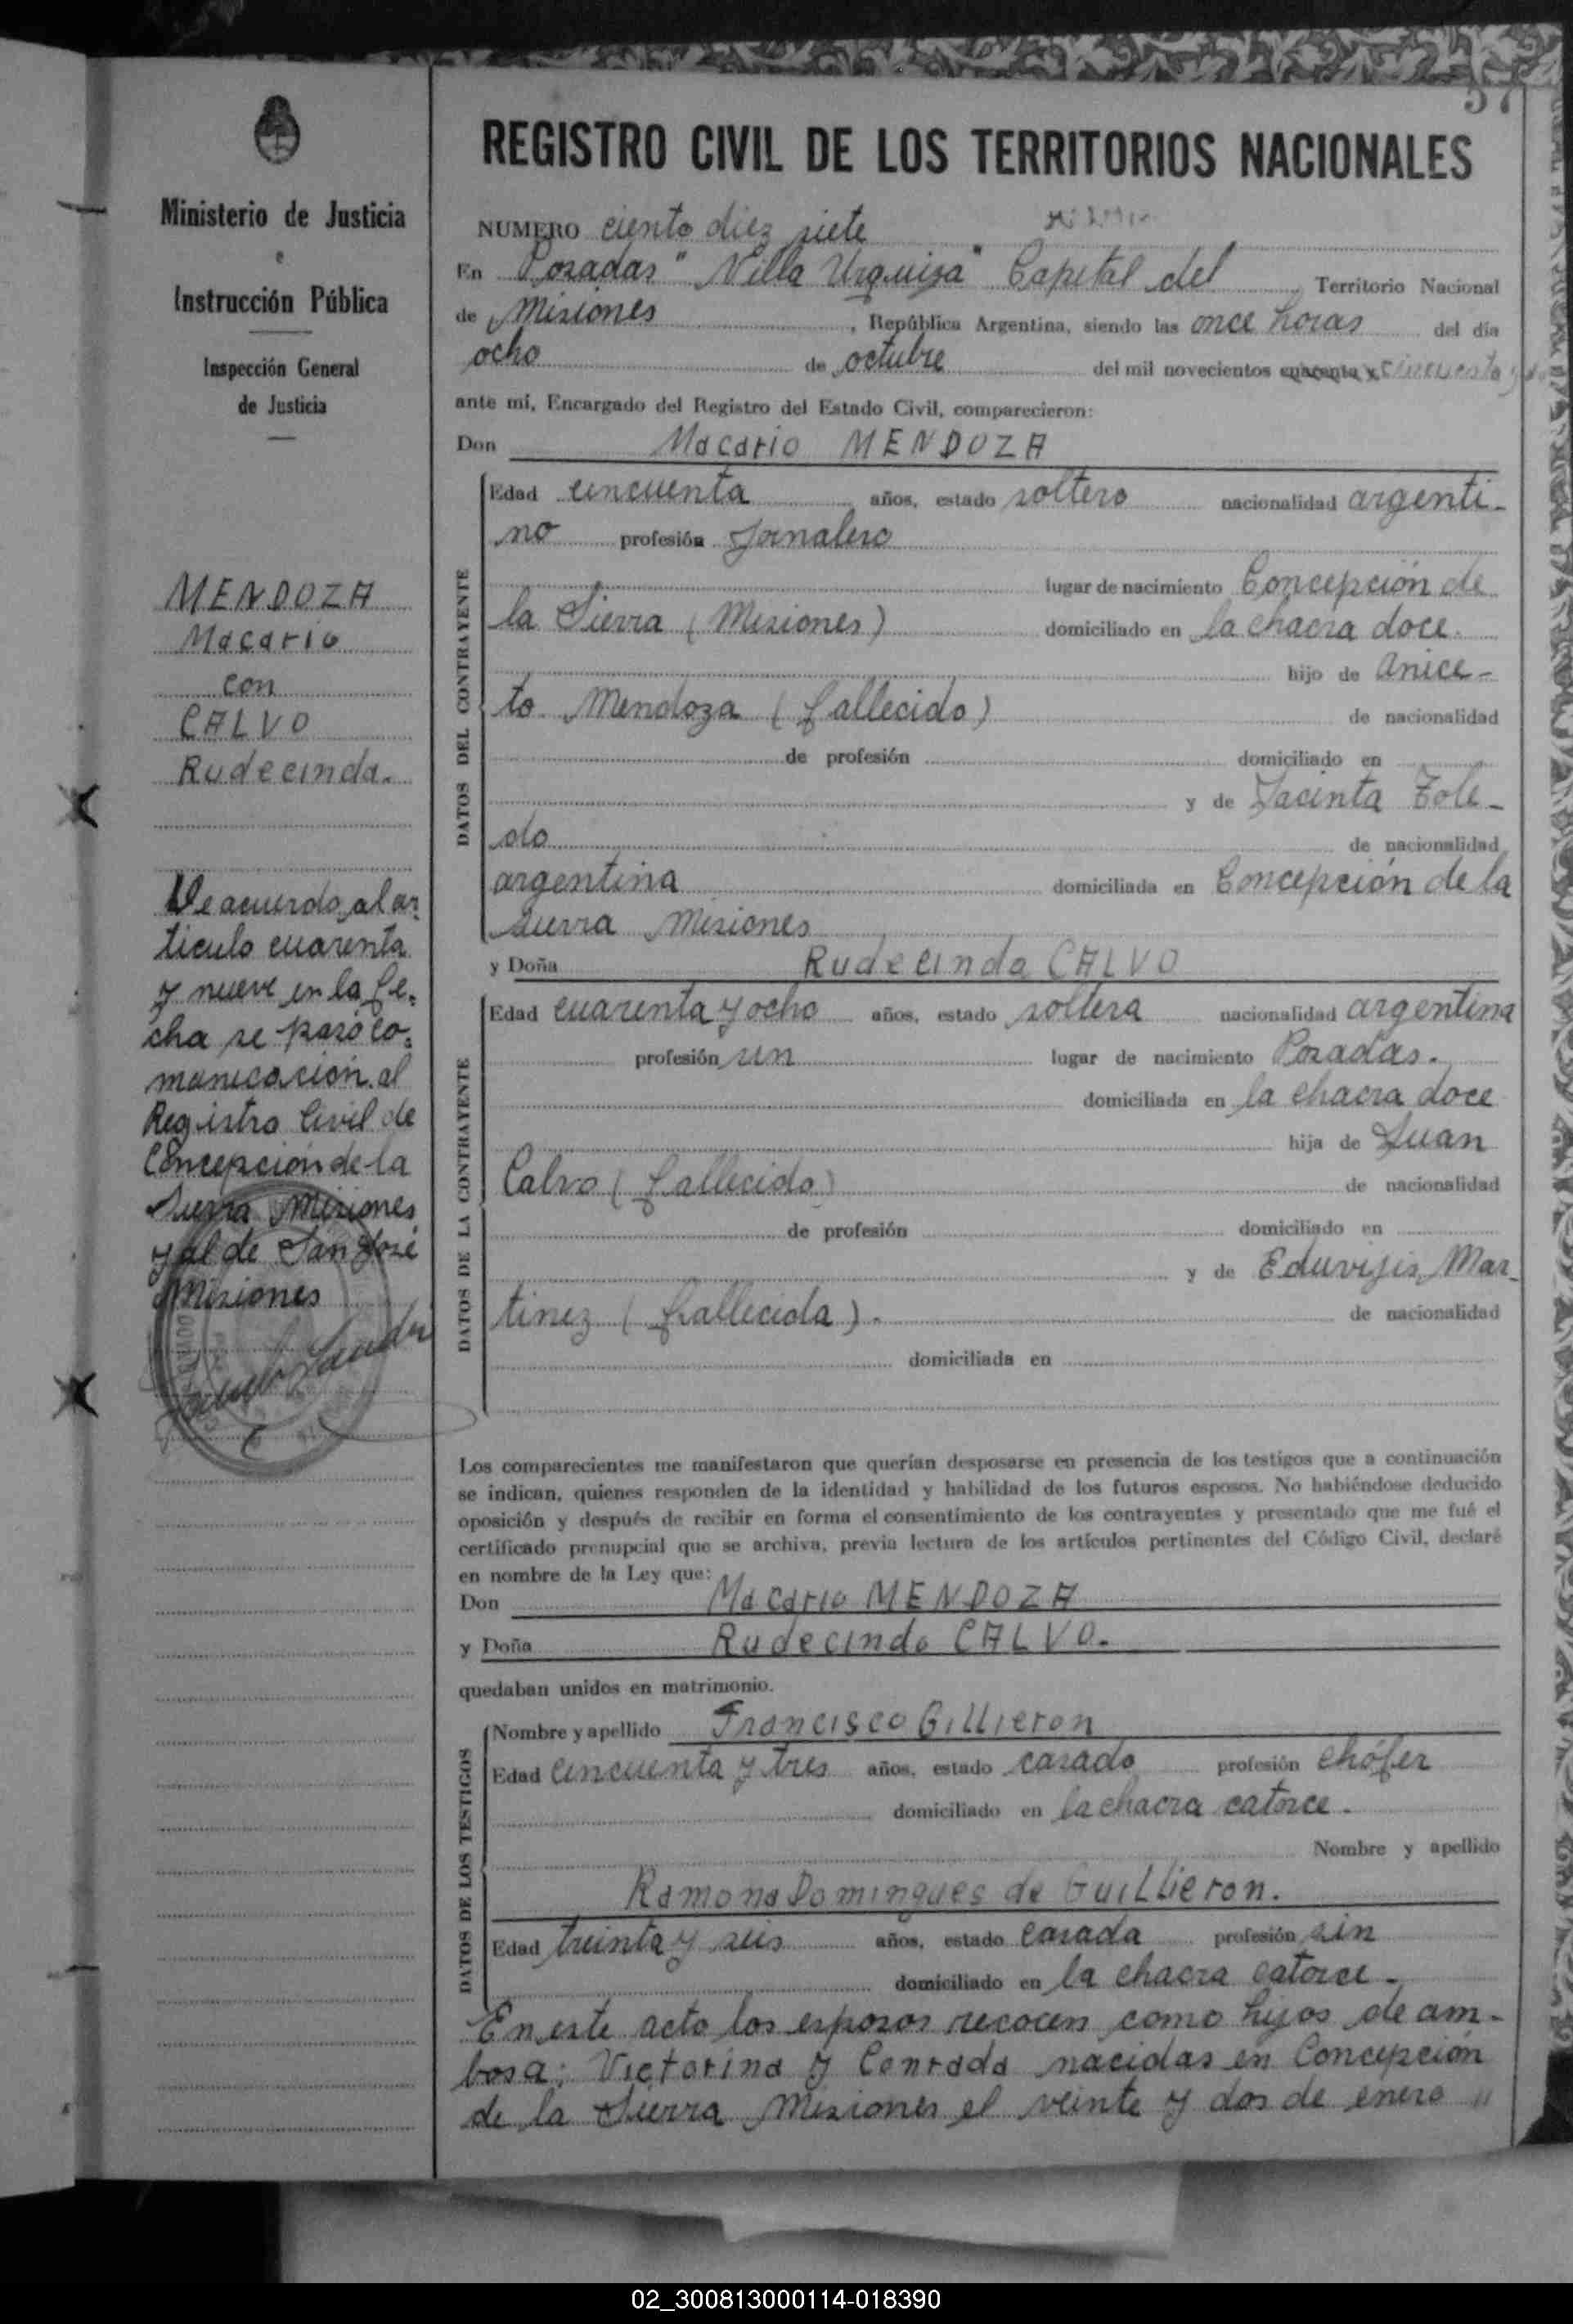 57
REGISTRO CIVIL DE LOS TERRITORIOS NACIONALES
Ministerio de Justicia
e
Instrucción Pública
Inspección General
de Justicia
MENDOZA
Macario
con
CALVO
Rudecinda.
De acuerdo al ar-
ticulo cuarenta
y nueve en la fe-
cha se pasó co-
municación al
Registro Civil de
Concepción de la
Sierra Misiones
y al de San José
Misiones
NUMERO ciento diez siete
En Posadas "Villa Urquiza" Capital del Territorio Nacional
de Misiones, República Argentina, siendo las once horas del día
ocho de octubre del mil novecientos cuarenta y cincuenta y
ante mí, Encargado del Registro del Estado Civil, comparecieron:
Don Macario MENDOZA
DATOS DEL CONTRAYENTE
Edad cincuenta años, estado soltero nacionalidad argenti-
no profesión Jornalero
lugar de nacimiento Concepción de
la Sierra (Misiones) domiciliado en la chacra doce.
hijo de Anice-
to Mendoza (fallecido) de nacionalidad
de profesión domiciliado en
y de Jacinta Tole-
do de nacionalidad
argentina domiciliada en Concepción de la
Sierra Misiones
y Doña Rudecinda CALVO
DATOS DE LA CONTRAYENTE
Edad cuarenta y ocho años, estado soltera nacionalidad argentina
profesión sin lugar de nacimiento Posadas.
domiciliada en la chacra doce
hija de Juan
Calvo (fallecido) de nacionalidad
de profesión domiciliado en
y de Eduvijis Mar-
tinez (fallecida). de nacionalidad
domiciliada en
Los comparecientes me manifestaron que querían desposarse en presencia de los testigos que a continuación
se indican, quienes responden de la identidad y habilidad de los futuros esposos. No habiéndose deducido
oposición y después de recibir en forma el consentimiento de los contrayentes y presentado que me fué el
certificado prenupcial que se archiva, previa lectura de los artículos pertinentes del Código Civil, declaré
en nombre de la Ley que:
Don Macario MENDOZA
y Doña Rudecinda CALVO.
quedaban unidos en matrimonio.
DATOS DE LOS TESTIGOS
Nombre y apellido Francisco Gillieron
Edad cincuenta y tres años, estado casado profesión chófer
domiciliado en la chacra catorce.
Nombre y apellido
Ramona Domingues de Guillieron.
Edad treinta y seis años, estado casada profesión sin
domiciliado en la chacra catorce.
En este acto los esposos recocen como hijos de am-
bosa: Victorina y Conrada nacidas en Concepción
de la Sierra Misiones el veinte y dos de enero "
02_300813000114-018390